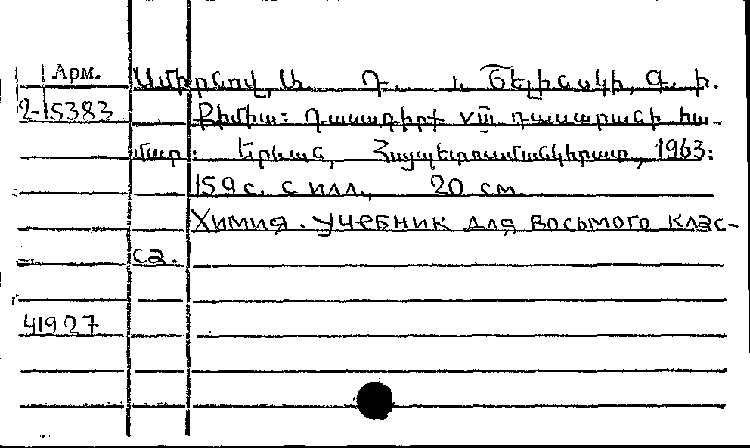 Арм.
Ամիրնով, Ա. Դ. և Շելինսկի, Գ. Ի.
2-15383 Քիմիա: Դասագիրք VIII դասարանի հա-
մար: Երևան, Հայպետուսմանկհրատ, 1963:
159 с. с илл., 20 см.
Химия. Учебник для восьмого клас-
са.
41927